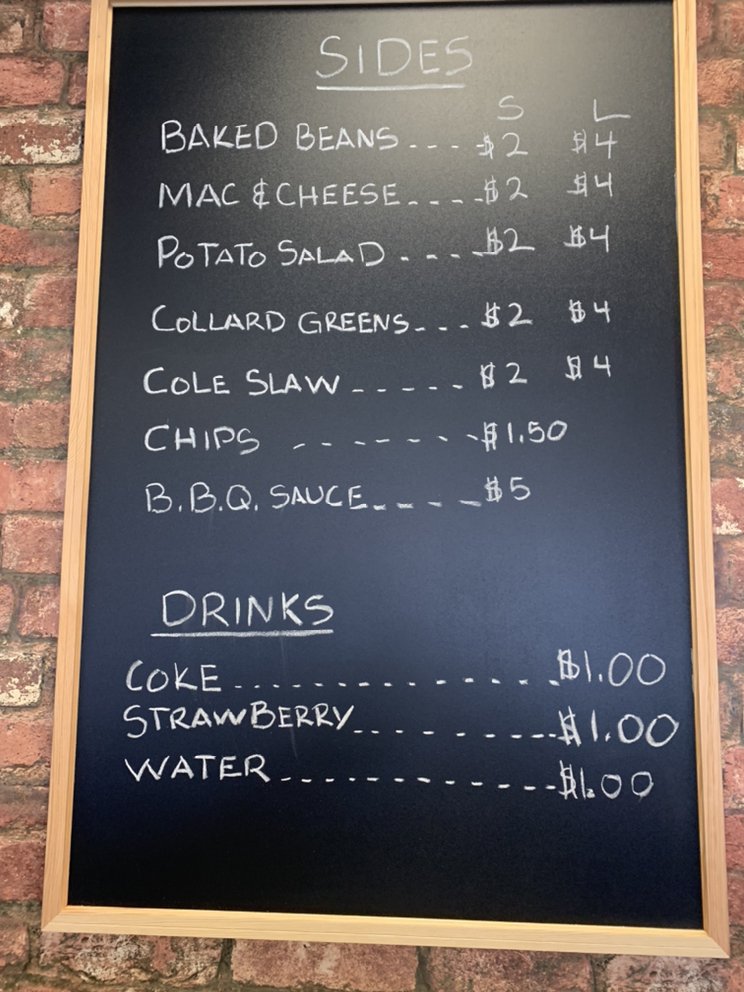 SIDES
S L
BAKED BEANS....$2 $4
MAC & CHEESE.....$2 $4
POTATO SALAD.....$2 $4
COLLARD GREENS...$2 $4
COLE SLAW ----- $2 $4
CHIPS -------$1.50
B.B.Q. SAUCE.----$5
DRINKS
COKE..............$1.00
STRAWBERRY.........$1.00
WATER...........$1.00